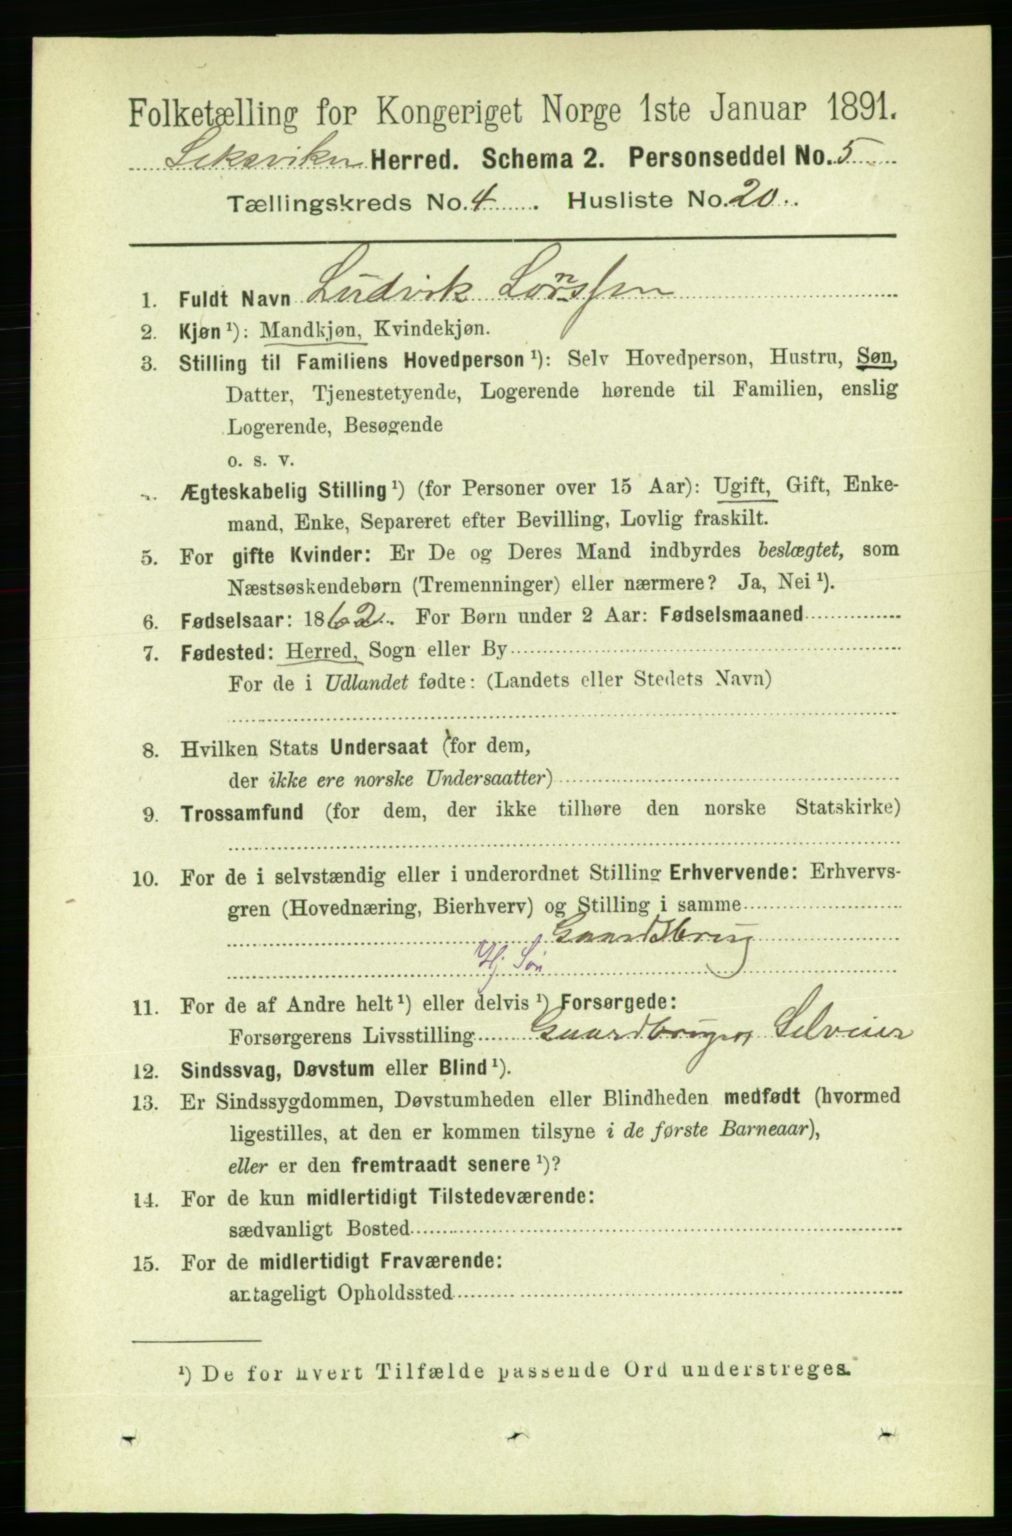 Folketælling for Kongeriget Norge 1ste Januar 1891.
Leksviken Herred. Schema 2. Personseddel No. 5
Tællingskreds No. 4. Husliste No. 20.
1. Fuldt Navn Ludvik
2. Kjøn ¹): Mandkjøn, Kvindekjøn.
3. Stilling til Familiens Hovedperson ¹): Selv Hovedperson, Hustru, Søn,
Datter, Tjenestetyende, Logerende hørende til Familien, enslig
Logerende, Besøgende
o. s. v.
Ægteskabelig Stilling ¹) (for Personer over 15 Aar): Ugift, Gift, Enke-
mand, Enke, Separeret efter Bevilling, Lovlig fraskilt.
5. For gifte Kvinder: Er De og Deres Mand indbyrdes beslægtet, som
Næstsøskendebørn (Tremenninger) eller nærmere? Ja, Nei ¹).
6. Fødselsaar: 1862. For Børn under 2 Aar: Fødselsmaaned
7. Fødested: Herred, Sogn eller By
For de i Udlandet fødte: (Landets eller Stedets Navn)
8. Hvilken Stats Undersaat (for dem,
der ikke ere norske Undersaatter)
9. Trossamfund (for dem, der ikke tilhøre den norske Statskirke)
10. For de i selvstændig eller i underordnet Stilling Erhvervende: Erhvervs-
gren (Hovednæring, Bierhverv) og Stilling i samme
Gaardsbrug
Hj. Søn
11. For de af Andre helt ¹) eller delvis ¹) Forsørgede:
Forsørgerens Livsstilling Gaardbruger Selveier
12. Sindssvag, Døvstum eller Blind ¹).
13. Er Sindssygdommen, Døvstumheden eller Blindheden medfødt (hvormed
ligestilles, at den er kommen tilsyne i de første Barneaar),
eller er den fremtraadt senere ¹)?
14. For de kun midlertidigt Tilstedeværende:
sædvanligt Bosted
15. For de midlertidigt Fraværende:
antageligt Opholdssted
¹) De for hvert Tilfælde passende Ord understreges.